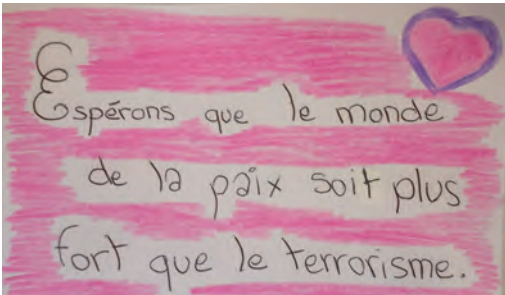 Espérons que le monde
de la paix soit plus
fort que le terrorisme.